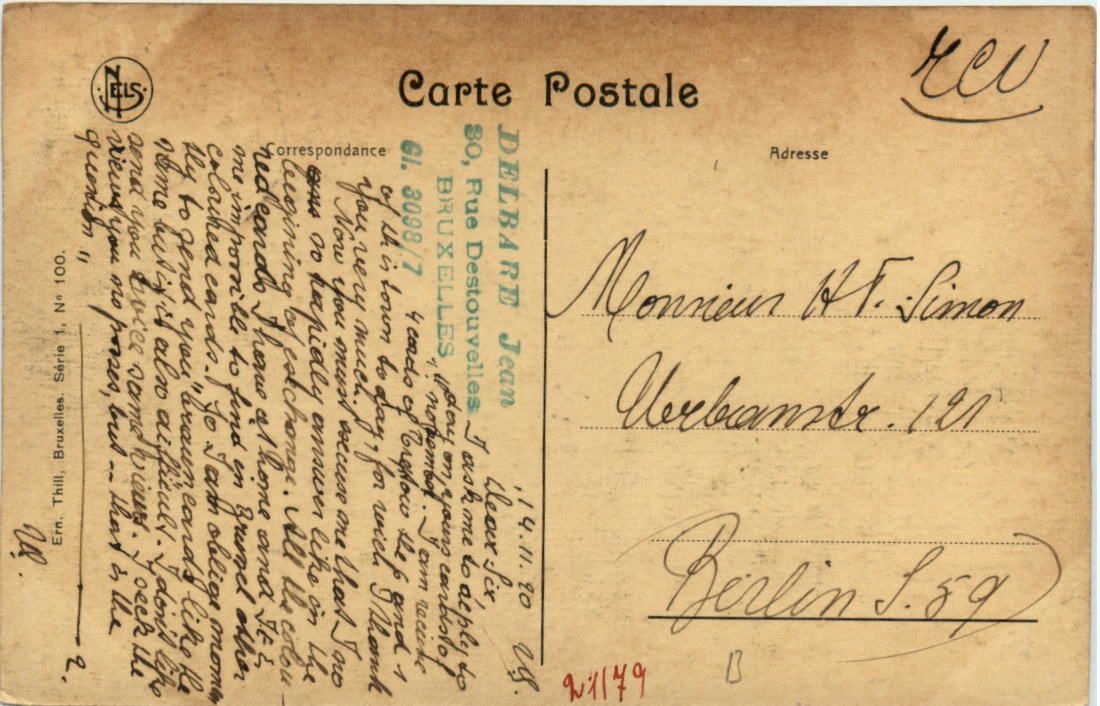 NELS
Carte Postale
RCU
Correspondance
Adresse
DELBARE Jean
30, Rue Destouvelles
BRUXELLES
Gl. 3098/7
14.11.20
Dear Sir,
I ask me to apply to
day on yours cards of
4 cards of the 6 and 1
of this town to day, for wich I thank
you very much.
Now you must excuse me that I no
so rapidly answer like in the
begining of exchange. All the colou-
red cards I have at home and It is
me impossible to find in Brussel other
coloured cards. So I am oblige
tly to send you "braun cards" like the
some but is is also difficult. I don't like
send you twice same views. I seek the
views you no posses, but -- that is the
question "
Ern. Thill, Bruxelles. Série 1, No 100.
2.
Monsieur H F. Simon
Urbanstr. 121
Berlin S. 59
21179
B